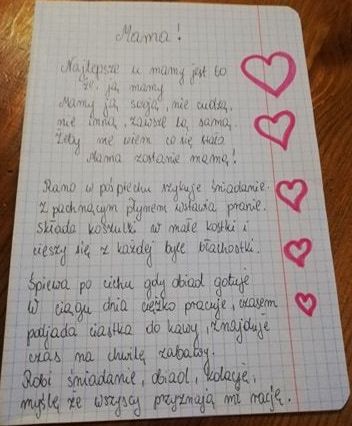 Mama!
Najlepsze u mamy jest to
że ją mamy
Mamy ją swoją, nie cudzą,
nie inną, zawsze tą samą.
Żeby nie wiem co się stało
Mama zostanie mamą!
Rano w pośpiechu szykuje śniadanie.
Z pachnącym płynem wstawia pranie.
Składa koszulki w małe kostki i
cieszy się z każdej byle błachostki.
Śpiewa po cichu gdy obiad gotuje
W ciągu dnia ciężko pracuje, czasem
podjada ciastka do kawy, znajduje
czas na chwilę zabawy.
Robi śniadanie, obiad, kolację,
myślę że wszyscy przyznają mi rację.